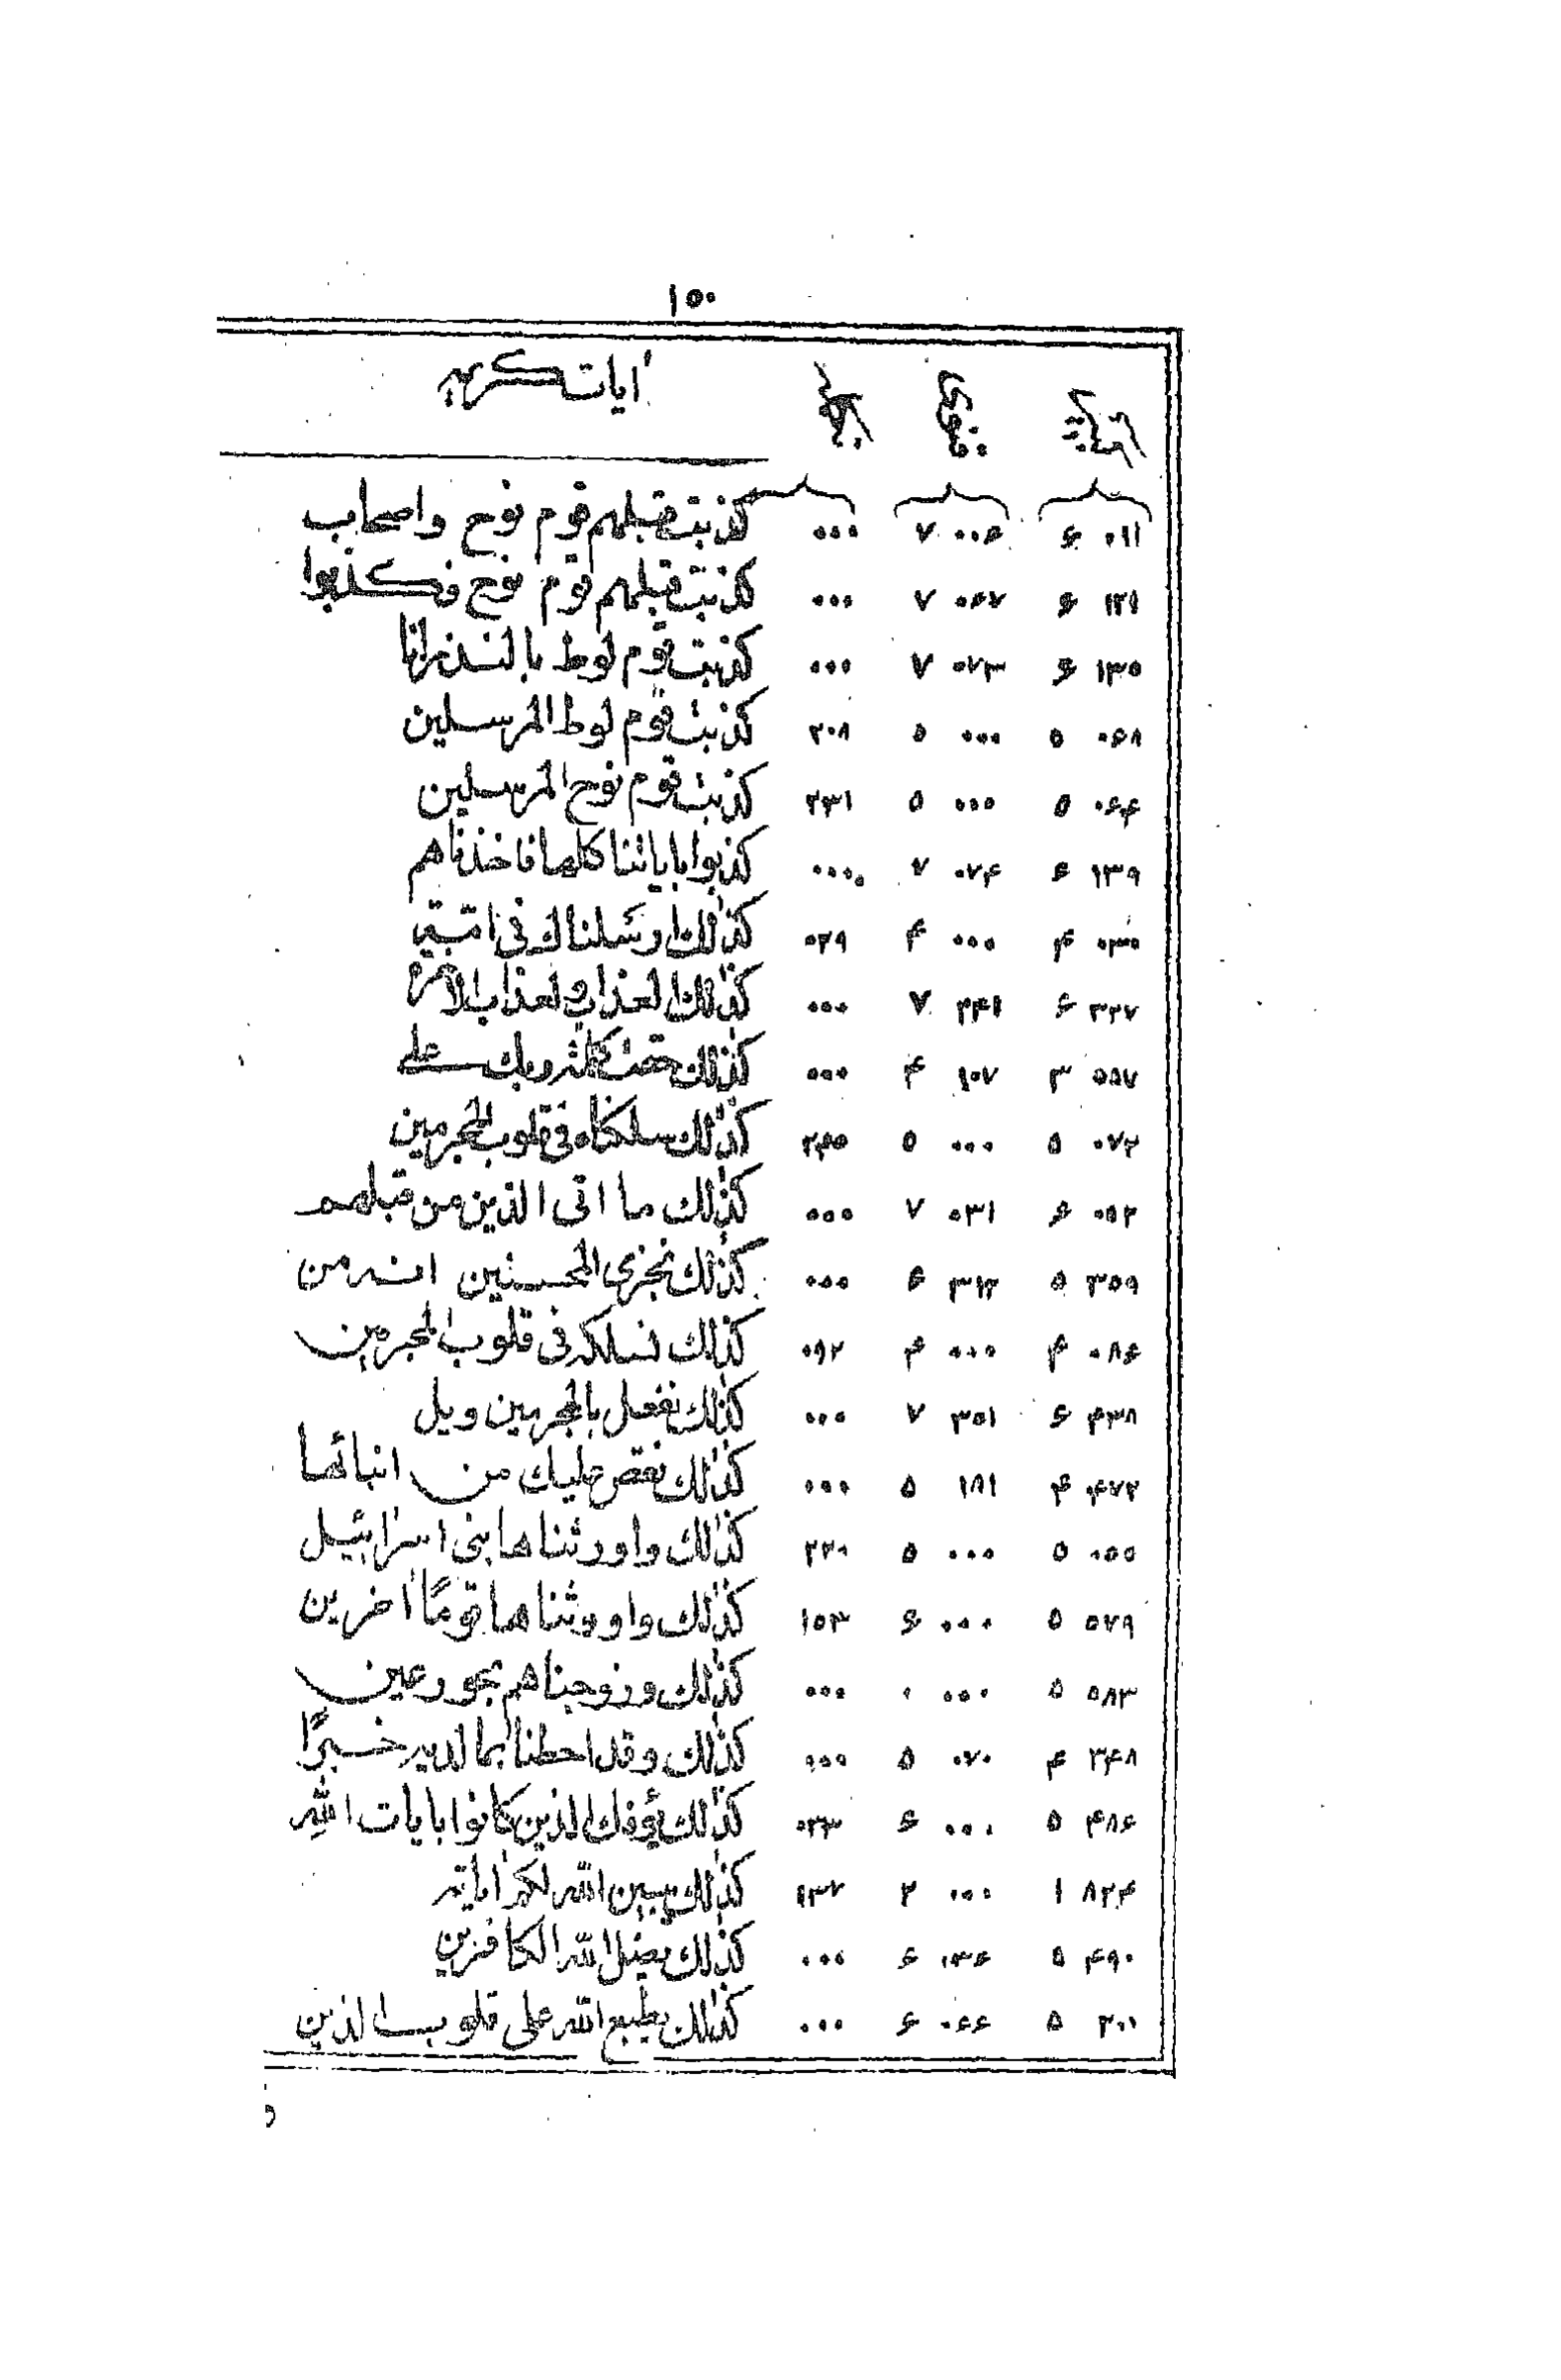 ١٥٠
اٰيات كريمه
٠١١ ۶ ٠٠۶ ٧ ٠٠٠ كذبت قبلهم قوم نوح واصحاب
١٢١ ۶ ٠۴٧ ٧ ٠٠٠ كذبت قبلهم قوم نوح فكذبوا
١٣٥ ۶ ٠٧٣ ٧ ٠٠٠ كذبت قوم لوط بالنذر انا
٠۶٨ ٥ ٠٠٠ ٥ ٢٠٨ كذبت قوم لوط المرسلين
٠۶۴ ٥ ٠٠٠ ٥ ٢٣١ كذبت قوم نوح المرسلين
١٣٩ ۶ ٠٧۴ ٧ ٠٠٠٠ كذبوا باياتنا كلها فاخذناهم
٠٣٠ ۴ ٠٠٠ ۴ ٠٢٩ كذٰلك ارسلناك فى امة
٣٢٧ ۶ ٢۴١ ٧ ٠٠٠ كذٰلك العذاب ولعذاب الاخرة
٥٨٧ ٣ ١٠٧ ۴ ٠٠٠ كذٰلك حقت كلمة ربك على
٠٧٢ ٥ ٠٠٠ ٥ ٢۴٥ كذٰلك سلكناه فى قلوب المجرمين
٠٥٢ ۶ ٠٣١ ٧ ٠٠٠ كذٰلك ما اتى الذين من قبلهم
٣٥٩ ٥ ٣١٢ ۶ ٠٠٠ كذٰلك نجزى المحسنين انه من
٠٨۶ ۴ ٠٠٠ ۴ ٠٩٢ كذٰلك نسلكه فى قلوب المجرمين
۴٣٨ ۶ ٣٥١ ٧ ٠٠٠ كذٰلك نفعل بالمجرمين ويل
۴٧٢ ۴ ١٨١ ٥ ٠٠٠ كذٰلك نقص عليك من انبائها
٠٥٥ ٥ ٠٠٠ ٥ ٢٢٠ كذٰلك واورثناها بنى اسرائيل
٥٧٩ ٥ ٠٠٠ ۶ ١٥٣ كذٰلك واورثناها قومًا اٰخرين
٥٨٣ ٥ ٠٠٠ ٠ ٠٠٠ كذٰلك وزوجناهم بحور عين
٣۴٨ ۴ ٠٧٠ ٥ ٠٠٠ كذٰلك وقد احطنا بما لديه خبرًا
۴٨۶ ٥ ٠٠٠ ۶ ٠٢٣ كذٰلك يؤفك الذين كانوا بايات الله
٨٢۴ ١ ٠٠٠ ٢ ١٣٧ كذٰلك يبين الله لكم اٰياته
۴٩٠ ٥ ٠٣۶ ۶ ٠٠٠ كذٰلك يضل الله الكافرين
٢٠١ ٥ ٠۶۶ ۶ ٠٠٠ كذٰلك يطبع الله على قلوب الذين